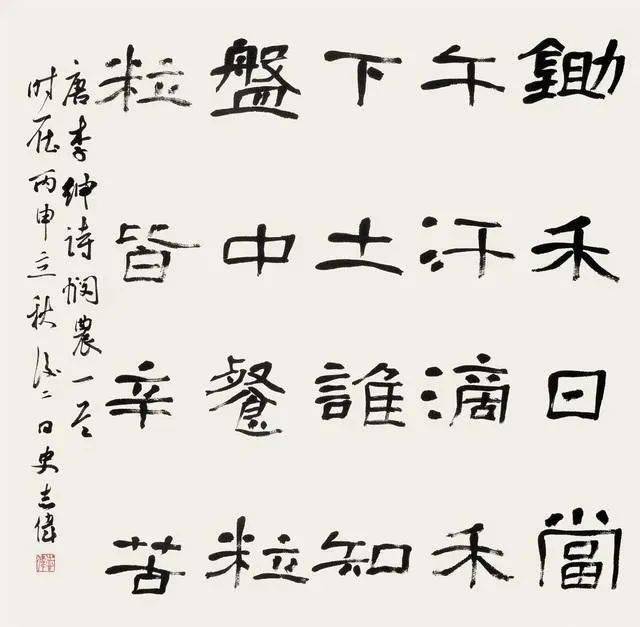 鋤禾日當
午汗滴禾
下土誰知
盤中餐粒
粒皆辛苦
唐李紳詩憫農一首
时在丙申立秋後二日史志偉